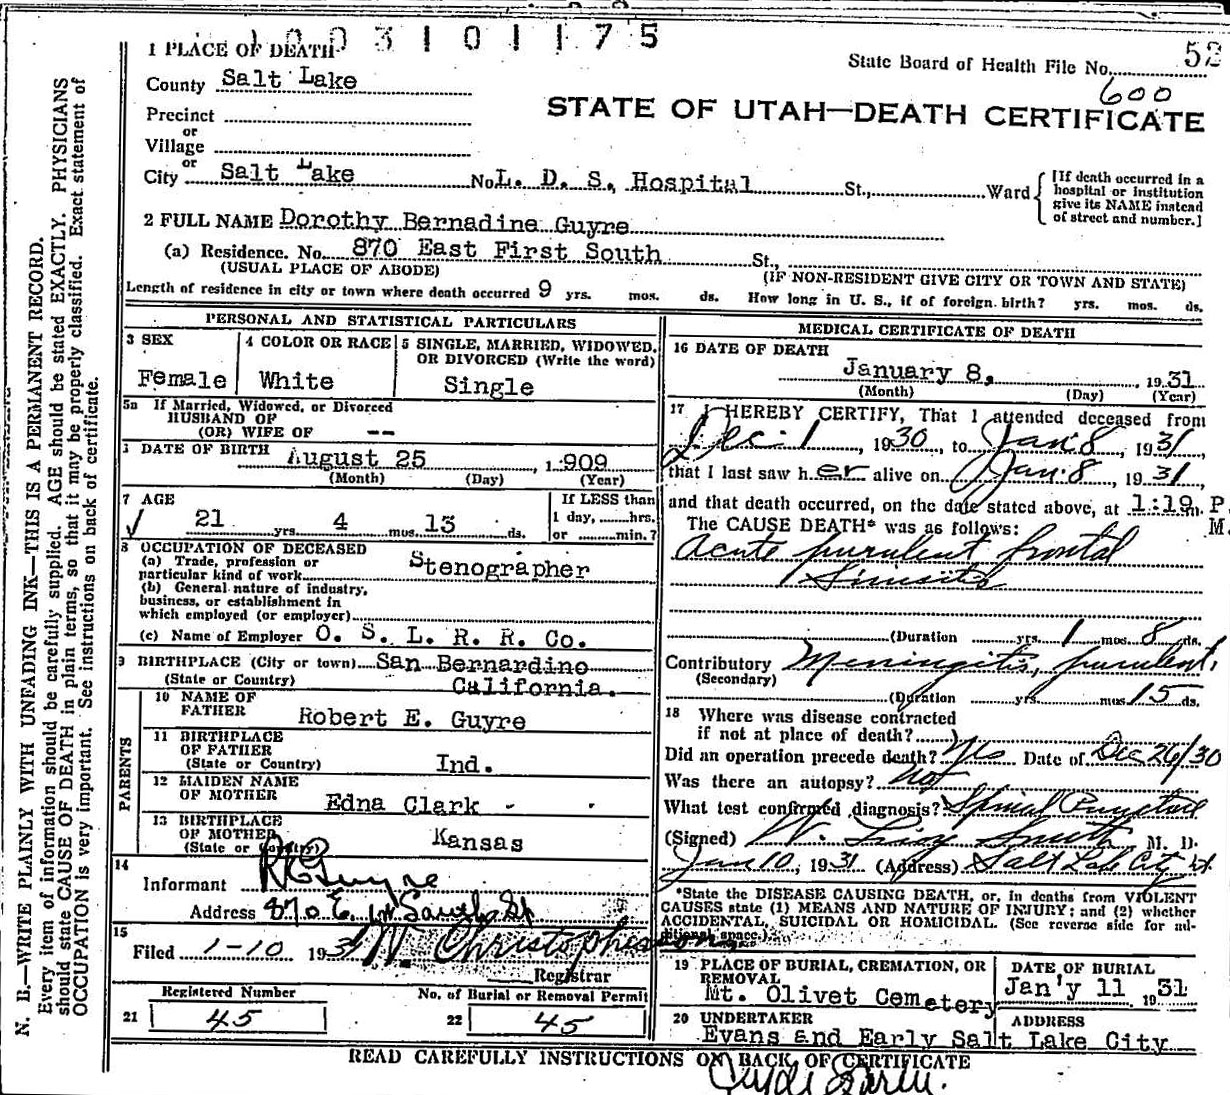 1 0 0 3 1 0 1 1 7 5
52
1 PLACE OF DEATH
State Board of Health File No.
600
County Salt Lake
STATE OF UTAH—DEATH CERTIFICATE
Precinct
or
Village
or
City Salt Lake No. L. D. S. Hospital St., Ward
[If death occurred in a hospital or institution give its NAME instead of street and number.]
2 FULL NAME Dorothy Bernadine Guyre
(a) Residence. No. 870 East First South St.,
(USUAL PLACE OF ABODE) (IF NON-RESIDENT GIVE CITY OR TOWN AND STATE)
Length of residence in city or town where death occurred 9 yrs. mos. ds. How long in U. S., if of foreign birth? yrs. mos. ds.
PERSONAL AND STATISTICAL PARTICULARS
3 SEX
Female
4 COLOR OR RACE
White
5 SINGLE, MARRIED, WIDOWED, OR DIVORCED (Write the word)
Single
5a If Married, Widowed, or Divorced
HUSBAND OF
(OR) WIFE OF --
DATE OF BIRTH August 25, 1909
(Month) (Day) (Year)
7 AGE
21 yrs. 4 mos. 13 ds.
If LESS than
1 day, hrs.
or min.?
8 OCCUPATION OF DECEASED
(a) Trade, profession or
particular kind of work Stenographer
(b) General nature of industry,
business, or establishment in
which employed (or employer)
(c) Name of Employer O. S. L. R. R. Co.
9 BIRTHPLACE (City or town) San Bernardino
(State or Country) California.
PARENTS
10 NAME OF
FATHER Robert E. Guyre
11 BIRTHPLACE
OF FATHER
(State or Country) Ind.
12 MAIDEN NAME
OF MOTHER Edna Clark
13 BIRTHPLACE
OF MOTHER
(State or Country) Kansas
14
Informant R E Guyre
Address 870 E. 1st South St
15
Filed 1-10 1931 W. Christopherson
Registrar
Registered Number
21 45
No. of Burial or Removal Permit
22 45
MEDICAL CERTIFICATE OF DEATH
16 DATE OF DEATH
January 8, 1931
(Month) (Day) (Year)
17 I HEREBY CERTIFY, That I attended deceased from
Dec. 1, 1930, to Jan. 8, 1931,
that I last saw her alive on Jan. 8, 1931
and that death occurred, on the date stated above, at 1:19 m. P. M.
The CAUSE DEATH* was as follows:
Acute purulent frontal
Sinusitis
(Duration yrs. 1 mos. 8 ds.
Contributory Meningitis, purulent,
(Secondary)
(Duration yrs. mos. 15 ds.
18 Where was disease contracted
if not at place of death?
Did an operation precede death? Yes Date of Dec 26/30
Was there an autopsy? no
What test confirmed diagnosis? Spinal Puncture
(Signed) W. Smith M. D.
Jan 10, 1931 (Address) Salt Lake City Ut.
*State the DISEASE CAUSING DEATH, or, in deaths from VIOLENT
CAUSES state (1) MEANS AND NATURE OF INJURY; and (2) whether
ACCIDENTAL, SUICIDAL OR HOMICIDAL. (See reverse side for ad-
ditional space.)
19 PLACE OF BURIAL, CREMATION, OR
REMOVAL
Mt. Olivet Cemetery
DATE OF BURIAL
Jan'y 11 1931
20 UNDERTAKER ADDRESS
Evans and Early Salt Lake City
READ CAREFULLY INSTRUCTIONS ON BACK OF CERTIFICATE
N. B.—WRITE PLAINLY WITH UNFADING INK—THIS IS A PERMANENT RECORD.
Every item of information should be carefully supplied. AGE should be stated EXACTLY. PHYSICIANS
should state CAUSE OF DEATH in plain terms, so that it may be properly classified. Exact statement of
OCCUPATION is very important. See instructions on back of certificate.